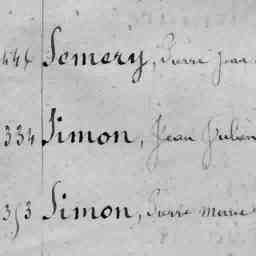 444 Somery, Pierre Jean
334 Simon, Jean Julien
353 Simon, Pierre Marie